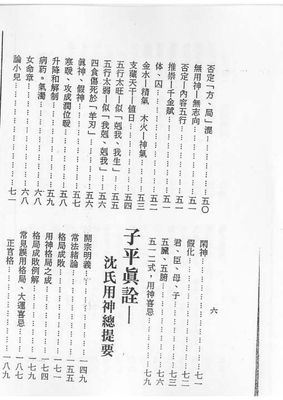 否定「方、局」混………………五〇
無用神—無志向………………五一
否定—內容五行………………五一
推崇—千金賦………………五二
体、囚………………五二
金水—精氣 木火—神氣………五三
支藏天干—值日………………五三
五行太旺—似「剋我、我生」……五五
五行太弱—似「我剋、剋我」……五五
四食傷死於「羊刃」………………五六
眞神、假神………………五七
寒暖、攻成潤位暖………………五七
升降和解制………………五九
病葯。氣濁………………六五
女命章………………六八
論小兒………………七一
六
閑神………………七一
假化………………七二
君、臣、母、子………………七三
五臟、五腑………………七六
五一二式，用神喜忌………………七九
子平眞詮—
沈氏用神總提要
開宗明義………………一四九
常法緒論………………一五五
格局成敗………………
用神格局之成………………
格局成敗例解………………一七八
常見誤用格局、大運喜忌………
正官格………………一八九